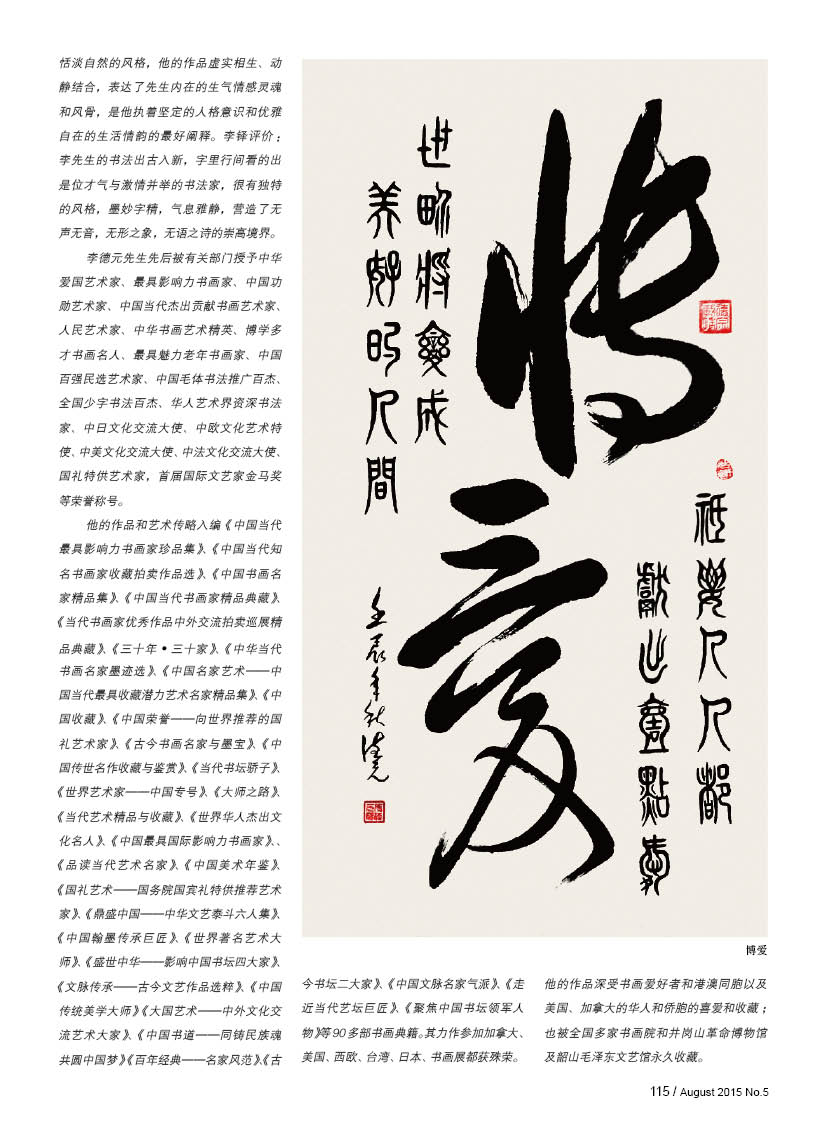 恬淡自然的风格，他的作品虚实相生、动
静结合，表达了先生内在的生气情感灵魂
和风骨，是他执着坚定的人格意识和优雅
自在的生活情韵的最好阐释。李铎评价：
李先生的书法出古入新，字里行间看的出
是位才气与激情并举的书法家，很有独特
的风格，墨妙字精，气息雅静，营造了无
声无音，无形之象，无语之诗的崇高境界。
李德元先生先后被有关部门授予中华
爱国艺术家、最具影响力书画家、中国功
勋艺术家、中国当代杰出贡献书画艺术家、
人民艺术家、中华书画艺术精英、博学多
才书画名人、最具魅力老年书画家、中国
百强民选艺术家、中国毛体书法推广百杰、
全国少字书法百杰、华人艺术界资深书法
家、中日文化交流大使、中欧文化艺术特
使、中美文化交流大使、中法文化交流大使、
国礼特供艺术家，首届国际文艺家金马奖
等荣誉称号。
他的作品和艺术传略入编《中国当代
最具影响力书画家珍品集》、《中国当代知
名书画家收藏拍卖作品选》、《中国书画名
家精品集》、《中国当代书画家精品典藏》、
《当代书画家优秀作品中外交流拍卖巡展精
品典藏》、《三十年•三十家》、《中华当代
书画名家墨迹选》、《中国名家艺术——中
国当代最具收藏潜力艺术名家精品集》、《中
国收藏》、《中国荣誉——向世界推荐的国
礼艺术家》、《古今书画名家与墨宝》、《中
国传世名作收藏与鉴赏》、《当代书坛骄子》、
《世界艺术家——中国专号》、《大师之路》、
《当代艺术精品与收藏》、《世界华人杰出文
化名人》、《中国最具国际影响力书画家》、、
《品读当代艺术名家》、《中国美术年鉴》、
《国礼艺术——国务院国宾礼特供推荐艺术
家》、《鼎盛中国——中华文艺泰斗六人集》、
《中国翰墨传承巨匠》、《世界著名艺术大
师》、《盛世中华——影响中国书坛四大家》、
《文脉传承——古今文艺作品选粹》、《中国
传统美学大师》《大国艺术——中外文化交
流艺术大家》、《中国书道——同铸民族魂
共圆中国梦》《百年经典——名家风范》、《古
博愛
祇要人人都
獻出壹點愛
世界將變成
美好的人間
壬辰年秋德元
博爱
今书坛二大家》、《中国文脉名家气派》、《走
近当代艺坛巨匠》、《聚焦中国书坛领军人
物》等90多部书画典籍。其力作参加加拿大、
美国、西欧、台湾、日本、书画展都获殊荣。
他的作品深受书画爱好者和港澳同胞以及
美国、加拿大的华人和侨胞的喜爱和收藏；
也被全国多家书画院和井岗山革命博物馆
及韶山毛泽东文艺馆永久收藏。
115 / August 2015 No.5